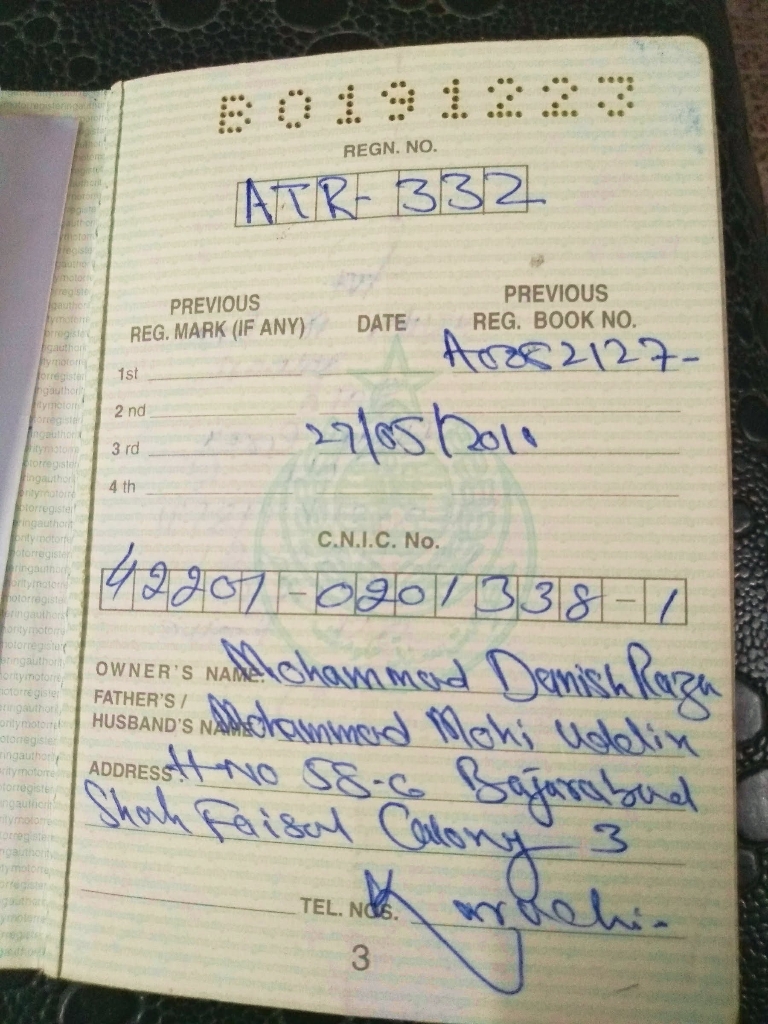 B0191223
REGN. NO.
ATR-332
PREVIOUS REG. MARK (IF ANY) DATE PREVIOUS REG. BOOK NO.
1st
2nd 27/05/2010
3rd
4th
C.N.I.C. No.
42201-0201338-1
OWNER'S NAME: Mohammad Danish Raza
FATHER'S / HUSBAND'S NAME Mohammad Mohi Uddin
ADDRESS: H-No 58-G
Shah Faisal Colony 3
TEL. NOS. Karachi.
3